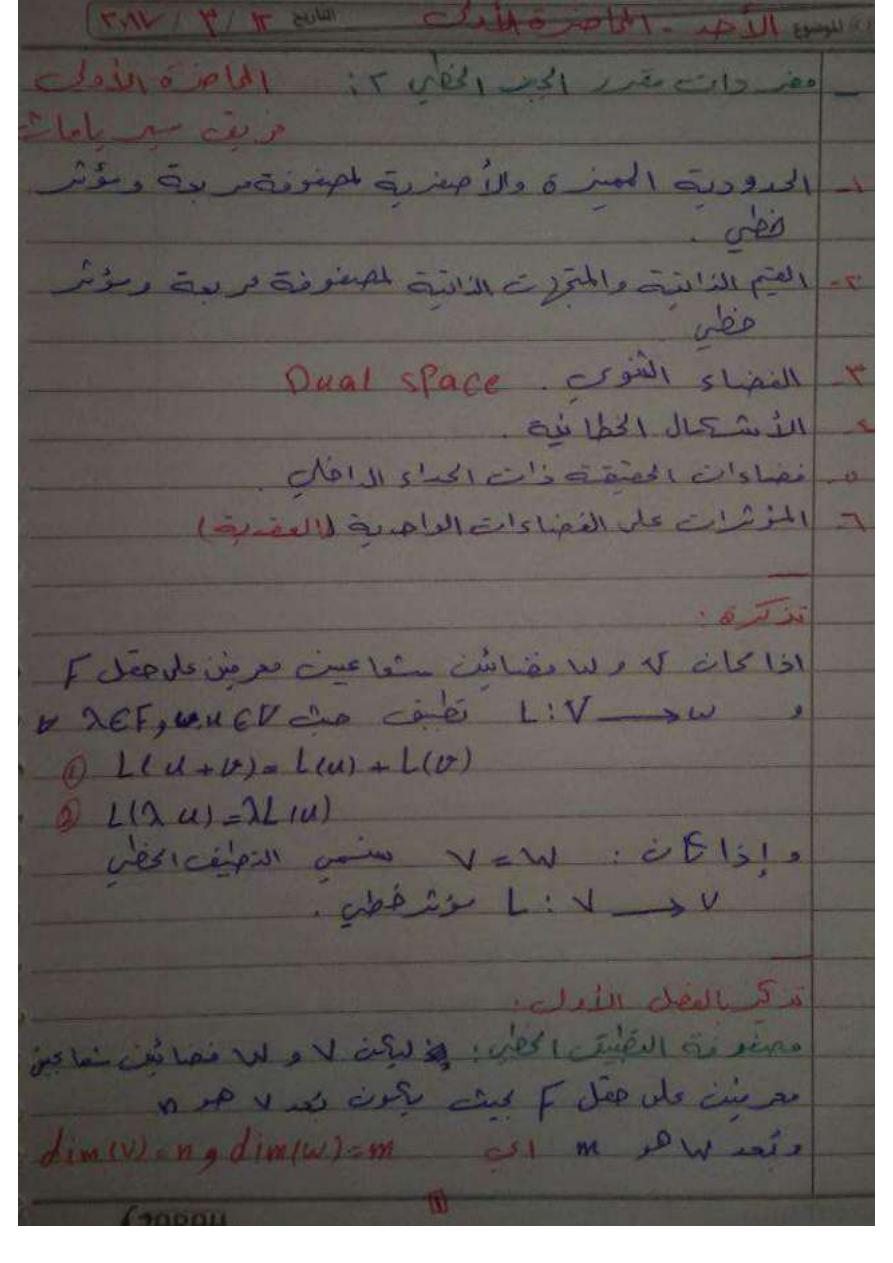 الموضوع الأحد - المحاضرة الأولى التاريخ ١٢ / ٣ / ٢٠١٧
- مفردات مقرر الجبر الخطي ٢: المحاضرة الأولى
فريق سيريامات
١- الحدودية المميزة والأصغرية لمصفوفة مربعة ومؤثر
خطي.
٢- القيم الذاتية والمتجهات الذاتية لمصفوفة مربعة ومؤثر
خطي
٣- الفضاء الثنوي. Dual space
٤- الأشكال الخطانية.
٥- فضاءات الحقيقة ذات الجداء الداخلي.
٦- المؤثرات على الفضاءات الواحدية (العقدية)
تذكرة:
اذا كان V و W فضائين شعاعين معرفين على حقل F
و L: V → W تطبيق حيث ∀ λ∈F, v,u ∈V
① L(u+v) = L(u) + L(v)
② L(λu) = λL(u)
وإذا كان: V = W سنسمي التطبيق الخطي
L: V → V مؤثر خطي.
تذكير بالفصل الأول:
مصفوفة التطبيق الخطي: ليكن V و W فضائين شعاعين
معرفين على حقل F بحيث يكون بعد V هو n
وبعد W هو m اي dim(V)=n و dim(W)=m
١